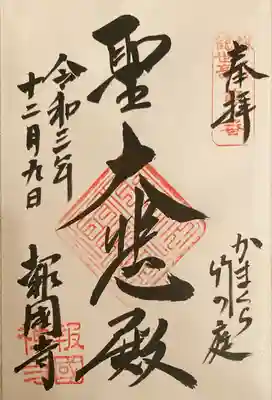 奉拝
かまくら
竹の庭
聖大悲殿
令和三年
十二月九日
報國寺
報國